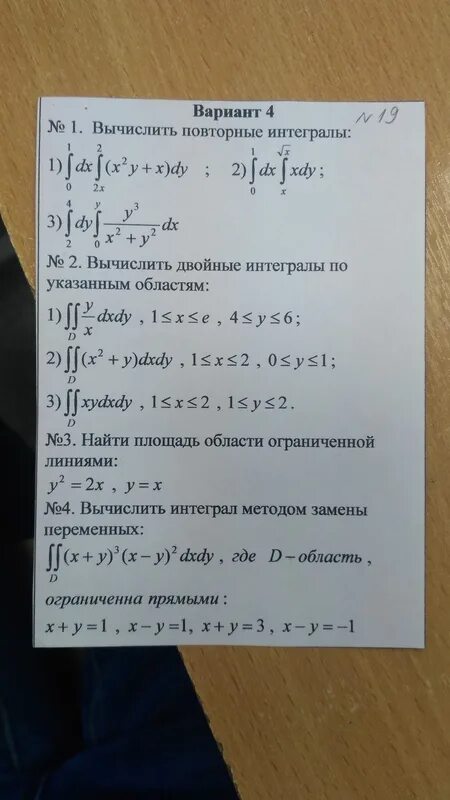 Вариант 4
№ 19
№ 1. Вычислить повторные интегралы:
1) ∫₀¹ dx ∫₂ₓ² (x²y + x)dy ; 2) ∫₀¹ dx ∫ₓ^√x xdy ;
3) ∫₂⁴ dy ∫₀^y y³/(x² + y²) dx
№ 2. Вычислить двойные интегралы по
указанным областям:
1) ∬_D y/x dxdy , 1 ≤ x ≤ e , 4 ≤ y ≤ 6 ;
2) ∬_D (x² + y)dxdy , 1 ≤ x ≤ 2 , 0 ≤ y ≤ 1 ;
3) ∬_D xydxdy , 1 ≤ x ≤ 2 , 1 ≤ y ≤ 2 .
№3. Найти площадь области ограниченной
линиями:
y² = 2x , y = x
№4. Вычислить интеграл методом замены
переменных:
∬_D (x + y)³(x − y)² dxdy , где D – область ,
ограниченна прямыми :
x + y = 1 , x − y = 1, x + y = 3 , x − y = −1